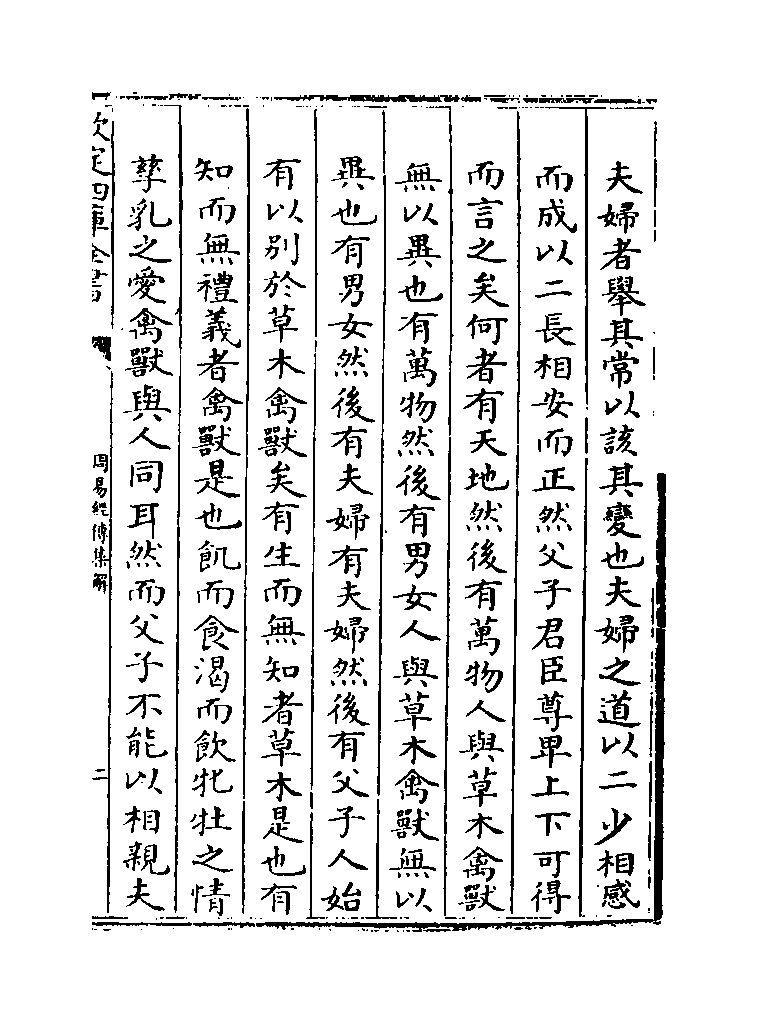 夫婦者舉其常以該其變也夫婦之道以二少相感
而成以二長相安而正然父子君臣尊卑上下可得
而言之矣何者有天地然後有萬物人與草木禽獸
無以異也有萬物然後有男女人與草木禽獸無以
異也有男女然後有夫婦有夫婦然後有父子人始
有以別於草木禽獸矣有生而無知者草木是也有
知而無禮義者禽獸是也飢而食渴而飲牝牡之情
孳乳之愛禽獸與人同耳然而父子不能以相親夫
欽定四庫全書
周易經傳集解
二